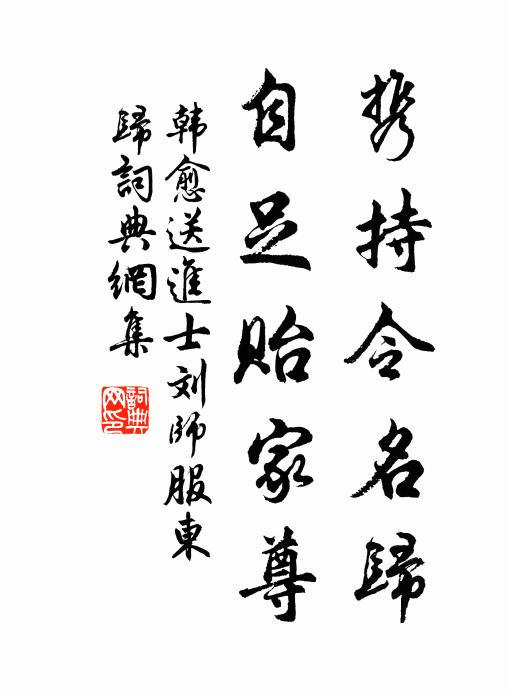 携持令名歸
自足貽家尊
韓愈送進士刘師服東
歸詞典網集
詞典
网印